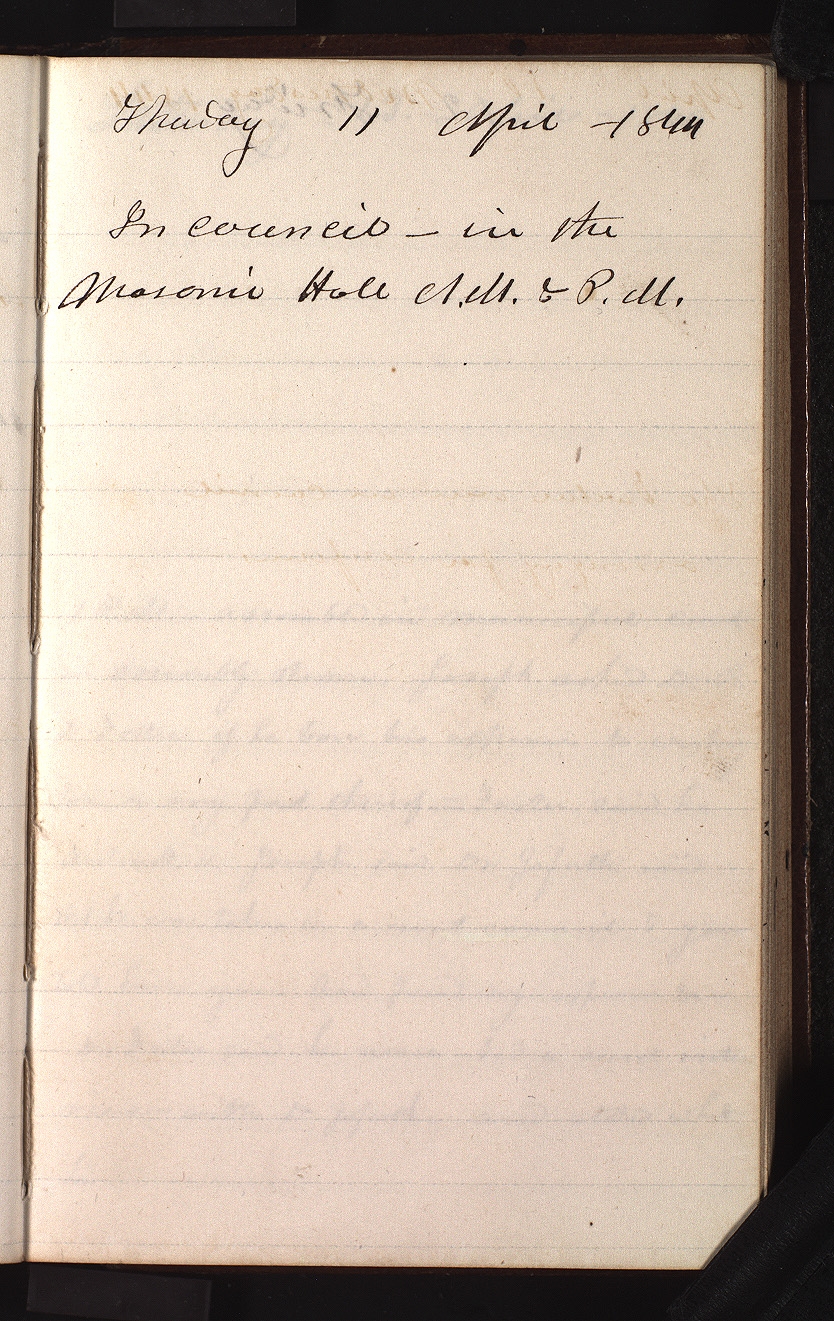 Thursday 11 April 1844
In council – in the
Masonic Hall A.M. & P.M.